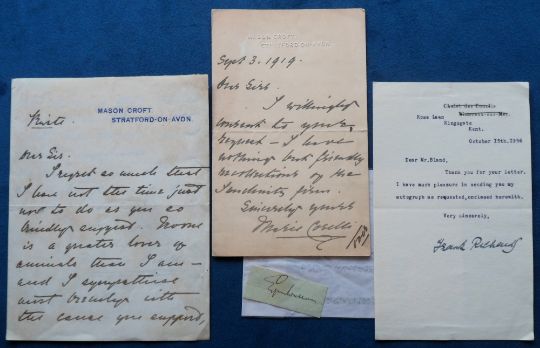 Private.
MASON CROFT,
STRATFORD-ON-AVON.
Dear Sir,
I regret so much that
I have not the time just
now to do as you so
kindly suggest. No one
is a greater lover of
animals than I am –
and I sympathise
most heartily with
the cause you support,
MASON CROFT,
STRATFORD-ON-AVON.
Sept 3. 1919.
Dear Sirs.
I willingly
consent to your
request – I have
nothing but friendly
recollections of the
firm.
Sincerely yours
Marie Corelli
Rose Lawn
Kingsgate
Kent.
October 15th.
Dear Mr. Bland,
Thank you for your letter.
I have much pleasure in sending you my
autograph as requested, enclosed herewith.
Very sincerely,
Frank Richards